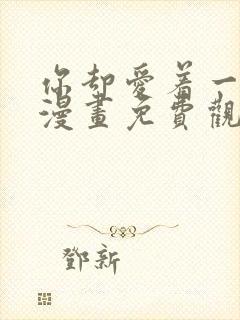 你却愛着一
漫畫免費觀
鄧新